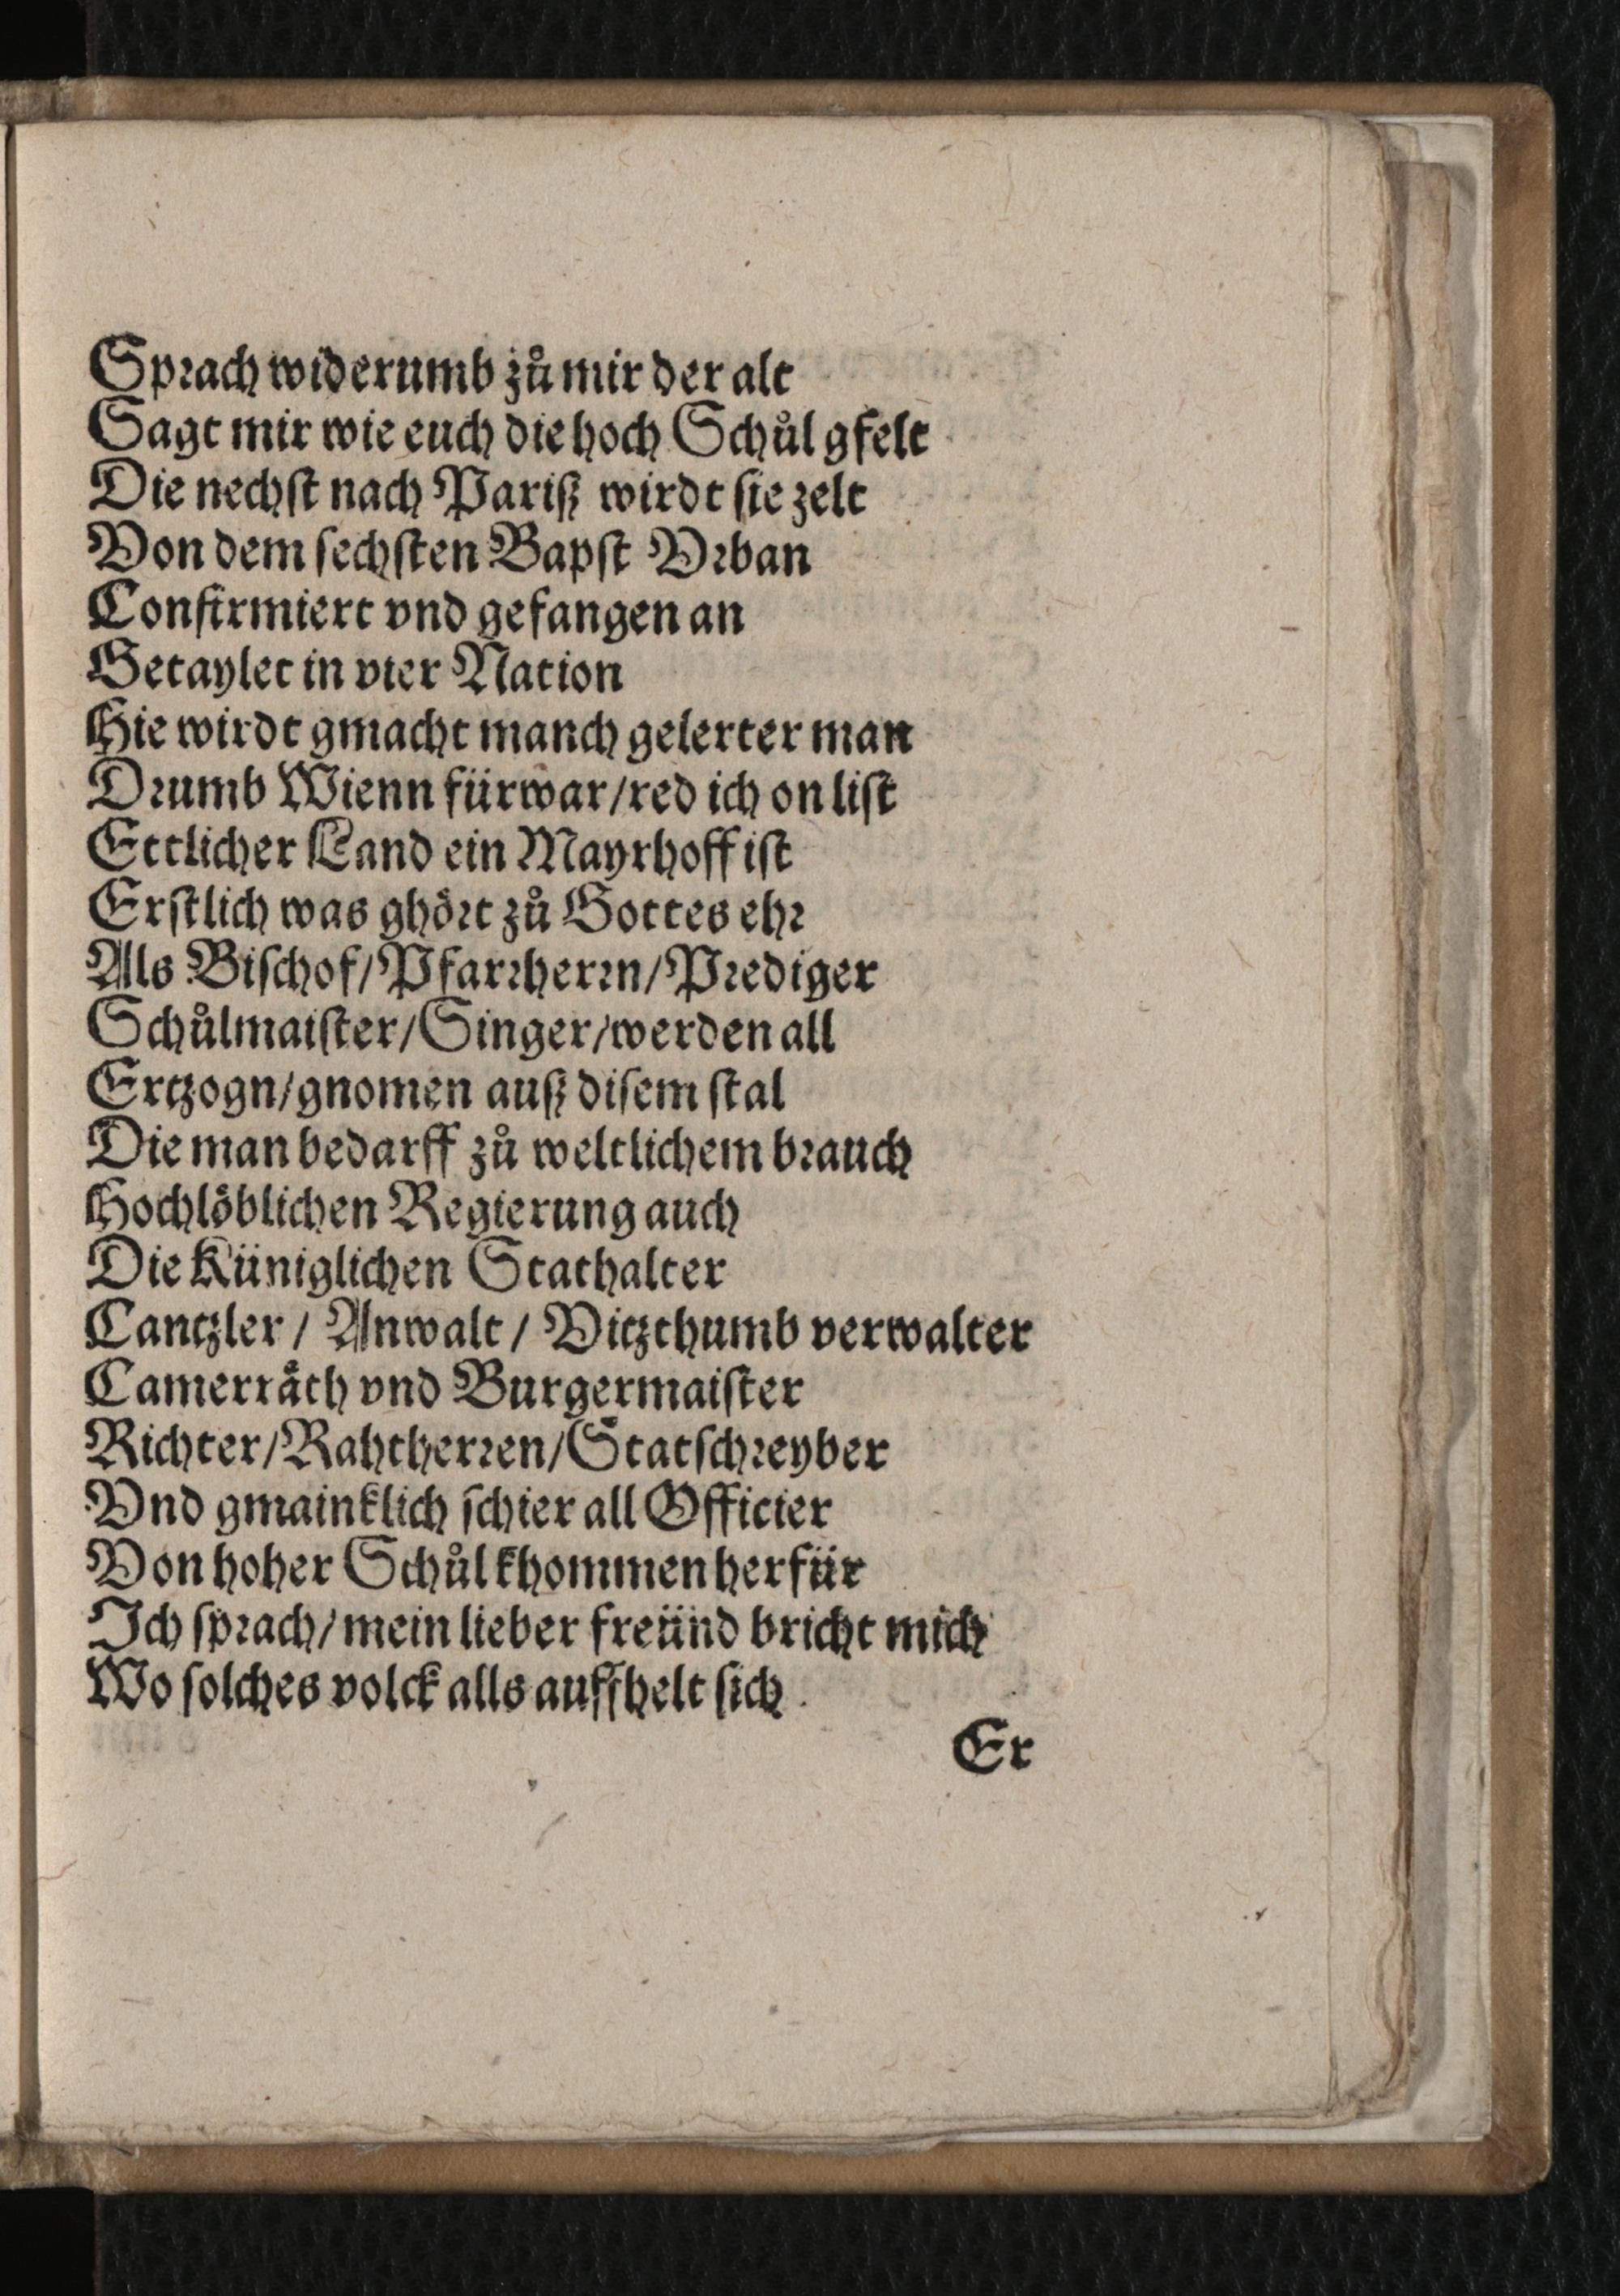 Sprach widerumb zů mir der alt
Sagt mir wie euch die hoch Schůl gfelt
Die nechſt nach Pariß wirdt ſie zelt
Von dem ſechſten Bapſt Vrban
Confirmiert vnd gefangen an
Getaylet in vier Nation
Hie wirdt gmacht manch gelerter man
Drumb Wienn fürwar/red ich on liſt
Ettlicher Land ein Mayrhoff iſt
Erſtlich was ghört zů Gottes ehr
Als Biſchof/Pfarrherrn/Prediger
Schůlmaiſter/Singer/werden all
Ertzogn/gnomen auß diſem ſtal
Die man bedarff zů weltlichem brauch
Hochlöblichen Regierung auch
Die Küniglichen Stathalter
Cantzler / Anwalt / Vitzthumb verwalter
Camerräth vnd Burgermaiſter
Richter/Rahtherren/Statſchreyber
Vnd gmainklich ſchier all Officier
Von hoher Schůl khommen herfür
Ich ſprach/mein lieber freünd bricht mich
Wo ſolches volck alls auffhelt ſich
Er